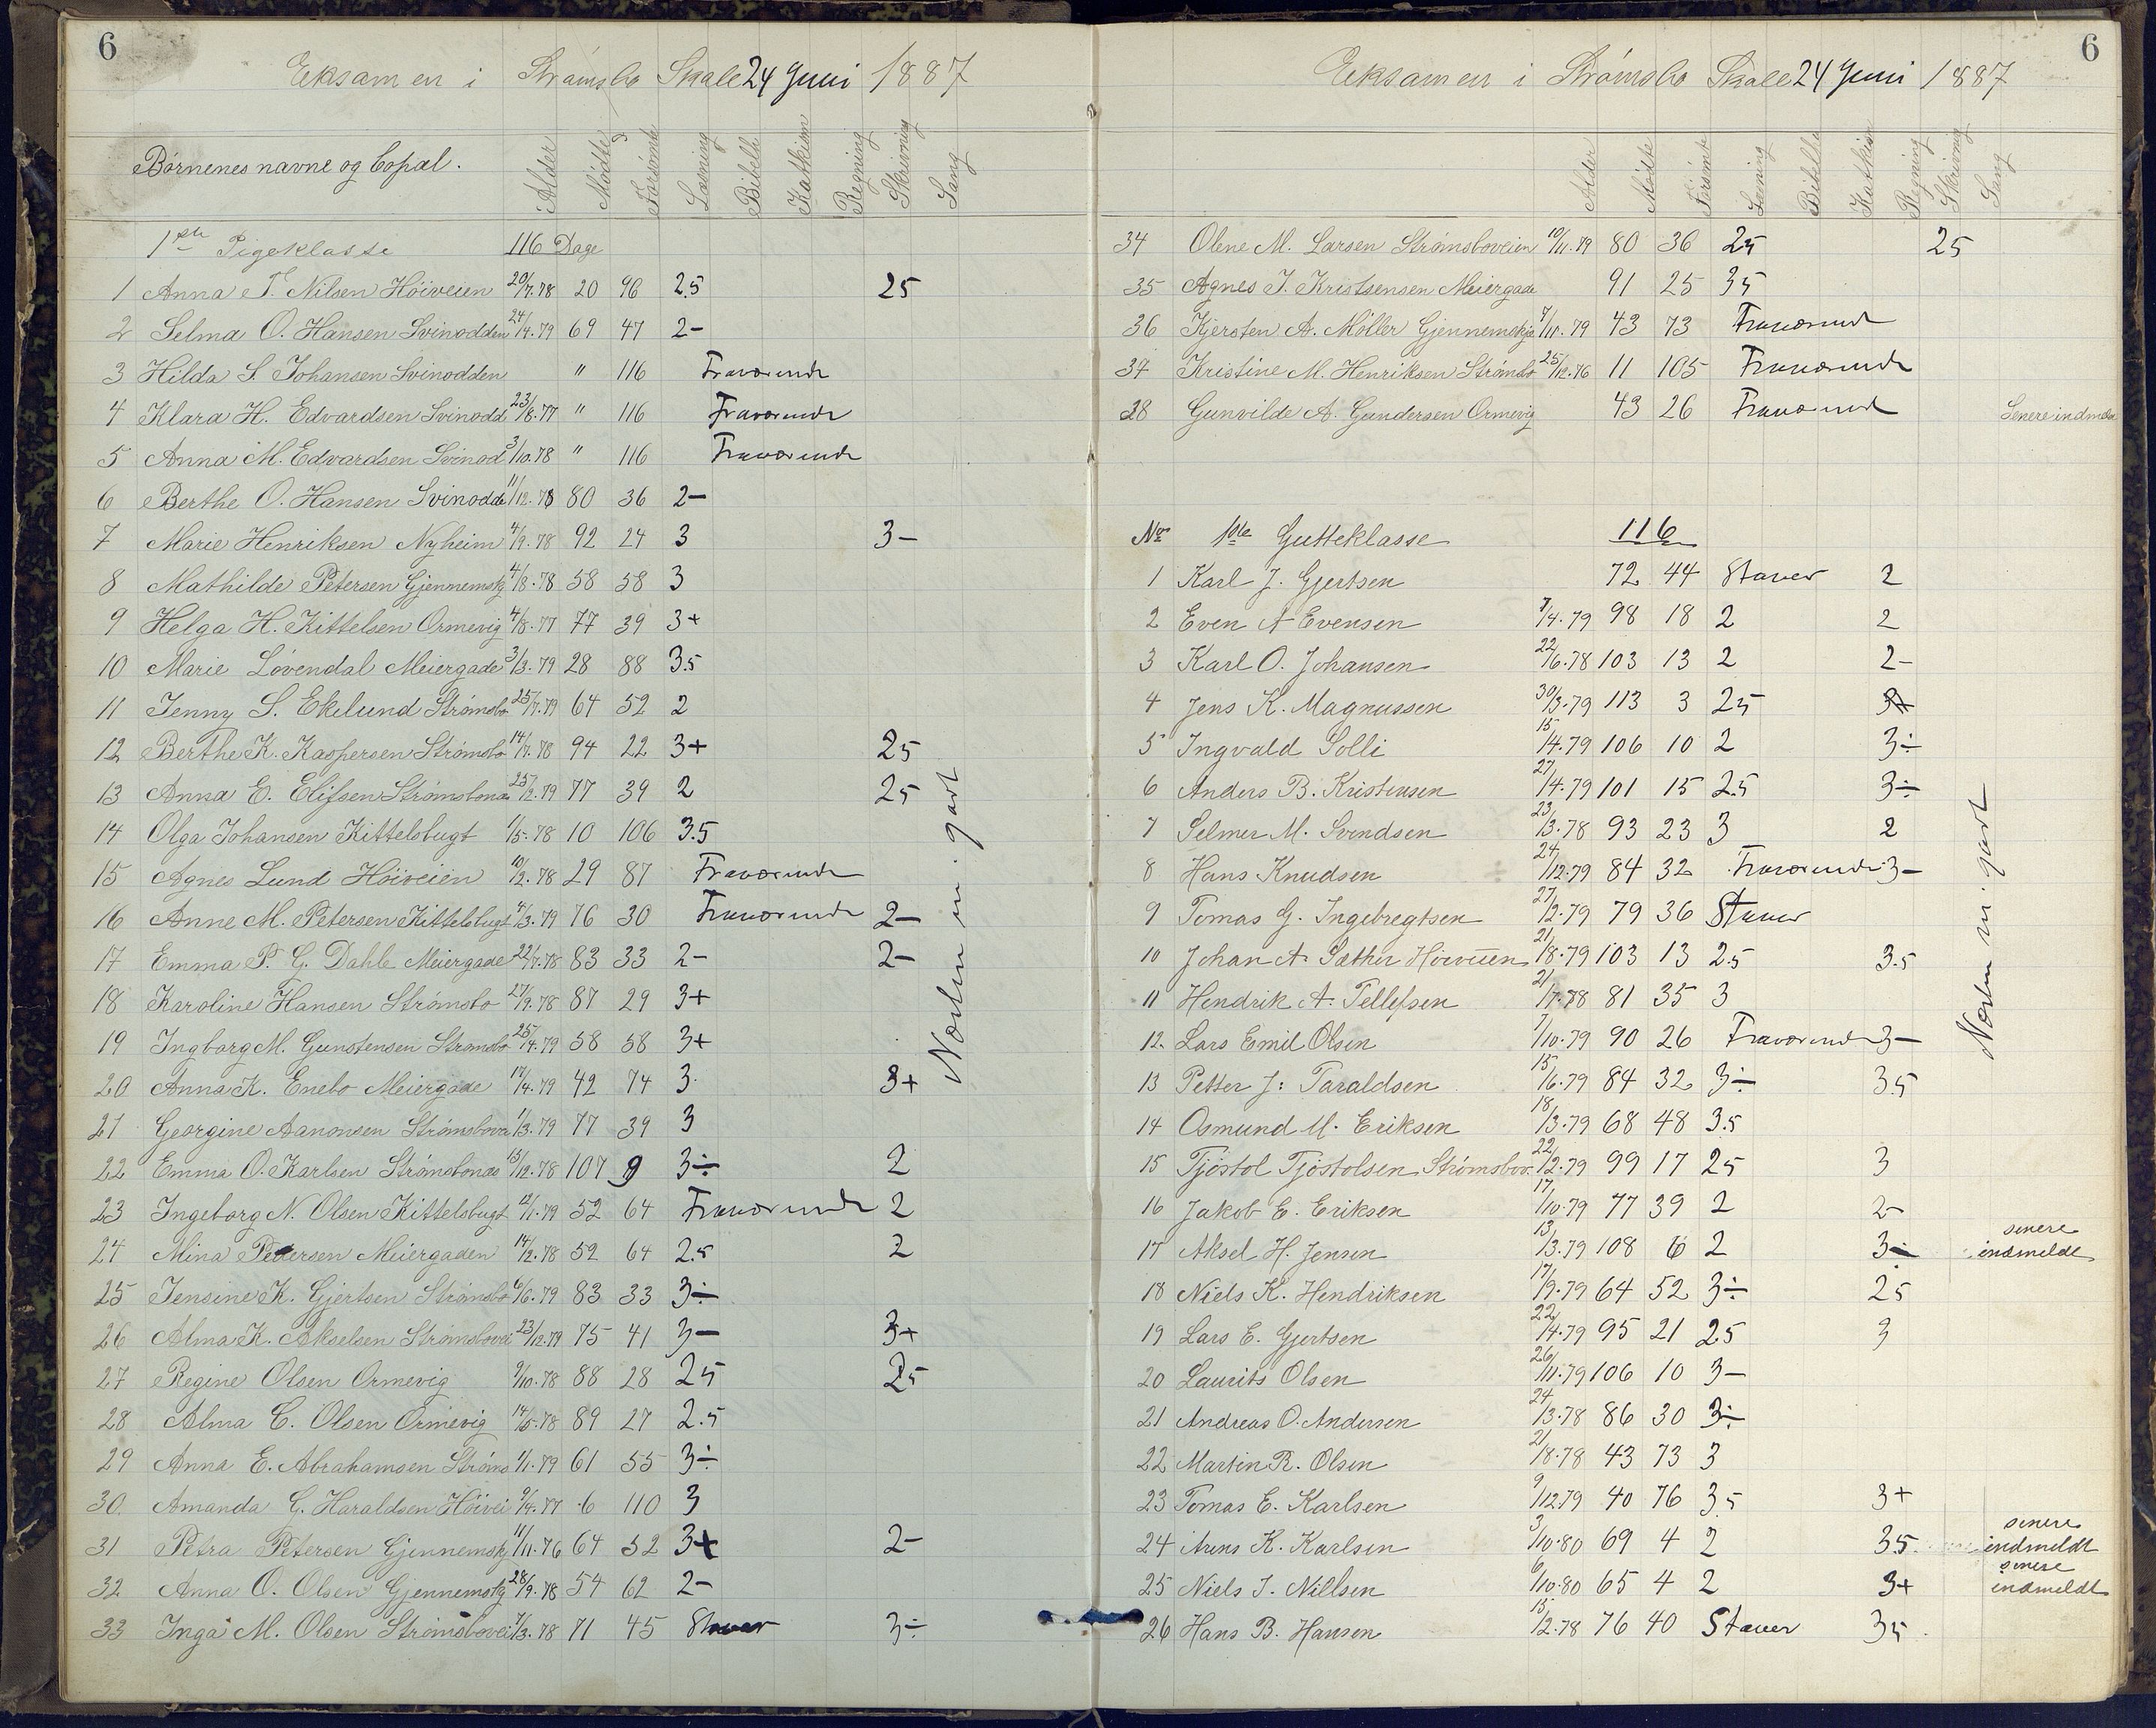 6
Eksamen i Strømsbo Skole 24 Juni 1887
Børnenes navne og Bopæl.
Alder Mødte Forsømte Læsning Bibelh Katkism Regning Skrivning Sang
1ste Pigeklasse 116 Dage
1 Anna T. Nilsen Høiveien 20/7.78 20 96 2.5 25
2 Selma O. Hansen Svinodden 24/4.79 69 47 2-
3 Hilda S. Johansen Svinodden " 116 Fraværende
4 Klara H. Edvardsen Svinodd 23/6.77 " 116 Fraværende
5 Anna M. Edvardsen Svinod 3/10.78 " 116 Fraværende
6 Berthe O. Hansen Svinodde 11/12.78 80 36 2-
7 Marie Henriksen Nyheim 4/9.78 92 24 3 3-
8 Mathilde Petersen Gjennemskj 4/8.78 58 58 3
9 Helga H. Kittelsen Ormevig 4/8.77 77 39 3+
10 Marie Løvendal Meiergade 3/3.79 28 88 3.5
11 Jenny S. Ekelund Strømsbo 25/7.79 64 52 2
12 Berthe K. Kaspersen Strømsbo 14/7.78 94 22 3+ 25
13 Anna E. Elifsen Strømsbona 25/2.79 77 39 2 25
14 Olga Johansen Kittelsbugt 1/5.78 10 106 3.5
15 Agnes Lund Høiveien 10/2.78 29 87 Fraværende
16 Anne M. Petersen Kittelsbugt 4/3.79 76 30 Fraværende 2-
17 Emma P. G. Dahle Meiergade 22/7.78 83 33 2- 2-
18 Karoline Hansen Strømsbo 27/9.78 87 29 3+
19 Ingborg M. Gunstensen Strømsbo 25/4.79 58 58 3+
20 Anna K. Enebo Meiergade 17/4.79 42 74 3 3+
21 Georgine Aanonsen Strømsbove 1/3.79 77 39 3
22 Emma O. Karlsen Strømsbonæs 13/12.78 107 9 3÷ 2
23 Ingeborg N. Olsen Kittelsbugt 12/1.79 52 64 Fraværende 2
24 Mina Pedersen Meiergaden 14/2.78 52 64 2.5 2
25 Jensine K. Gjertsen Strømsbo 6/6.79 83 33 3÷
26 Alma K. Akselsen Strømsbovei 23/12.79 75 41 3- 3+
27 Regine Olsen Ormevig 9/10.78 88 28 25 25
28 Alma C. Olsen Ormevig 14/5.78 89 27 2.5
29 Anna E. Abrahamsen Strøms 1/1.79 61 55 3÷
30 Amanda G. Haraldsen Høivei 9/4.77 6 110 3
31 Petra Petersen Gjennemskj 11/11.76 64 52 3+ 2-
32 Anna O. Olsen Gjennemskj 28/9.78 54 62 2-
33 Inga M. Olsen Strømsbovei 4/3.78 71 45 Staver 3÷
6
Eksamen i Strømsbo Skole 24 Juni 1887
Alder Mødte Forsømte Læsning Bibelh Katkism Regning Skrivning Sang
34 Olene M. Larsen Strømsboveien 10/11.79 80 36 25 25
35 Agnes J. Kristensen Meiergade 91 25 35
36 Kjersten A. Møller Gjennemskjæ 7/11.79 43 73 Fraværende
37 Kristine M. Henriksen Strømsbo 25/12.76 11 105 Fraværende
38 Gunvilde A. Gundersen Ormevig 43 26 Fraværende Senere indmeldt
No 1ste Gutteklasse 116
1 Karl J. Gjertsen 72 44 Staver 2
2 Even A Evensen 7/4.79 98 18 2 2
3 Karl O. Johansen 22/6.78 103 13 2 2-
4 Jens K. Magnussen 30/3.79 113 3 25
5 Ingvald Solli 15/4.79 106 10 2 3÷
6 Anders B. Kristensen 27/4.79 101 15 2.5 3÷
7 Selmer M. Svendsen 23/3.78 93 23 3 2
8 Hans Knudsen 24/12.79 84 32 Fraværende 3-
9 Tomas G. Ingebregtsen 27/2.79 79 36 Staver
10 Johan A. Sæther Høiveien 21/8.79 103 13 2.5 3.5
11 Hendrik A. Tellefsen 21/7.78 81 35 3
12 Lars Emil Olsen 7/10.79 90 26 Fraværende 3-
13 Petter J: Taraldsen 15/6.79 84 32 3÷ 3.5
14 Osmund M. Eriksen 18/3.79 68 48 3.5
15 Tjøstol Tjøstolsen Strømsbov. 22/2.79 99 17 25 3
16 Jakob E. Eriksen 17/10.79 77 39 2 2-
17 Aksel H. Jensen 13/3.79 108 6 2 3÷ senere indmeldt
18 Niels K. Hendriksen 17/9.79 64 52 3÷ 25
19 Lars E. Gjertsen 22/4.79 95 21 2.5 3
20 Laurits Olsen 26/11.79 106 10 3-
21 Andreas O. Andersen 24/3.78 86 30 3÷
22 Martin R. Olsen 21/8.78 43 73 3
23 Tomas E. Karlsen 9/12.79 40 76 3.5 3+
24 Arens K. Karlsen 3/10.80 69 4 2 3.5 senere indmeldt
25 Niels J. Nillsen 6/10.80 65 4 2 3+ senere indmeldt
26 Hans B. Hansen 15/2.78 76 40 Staver 35